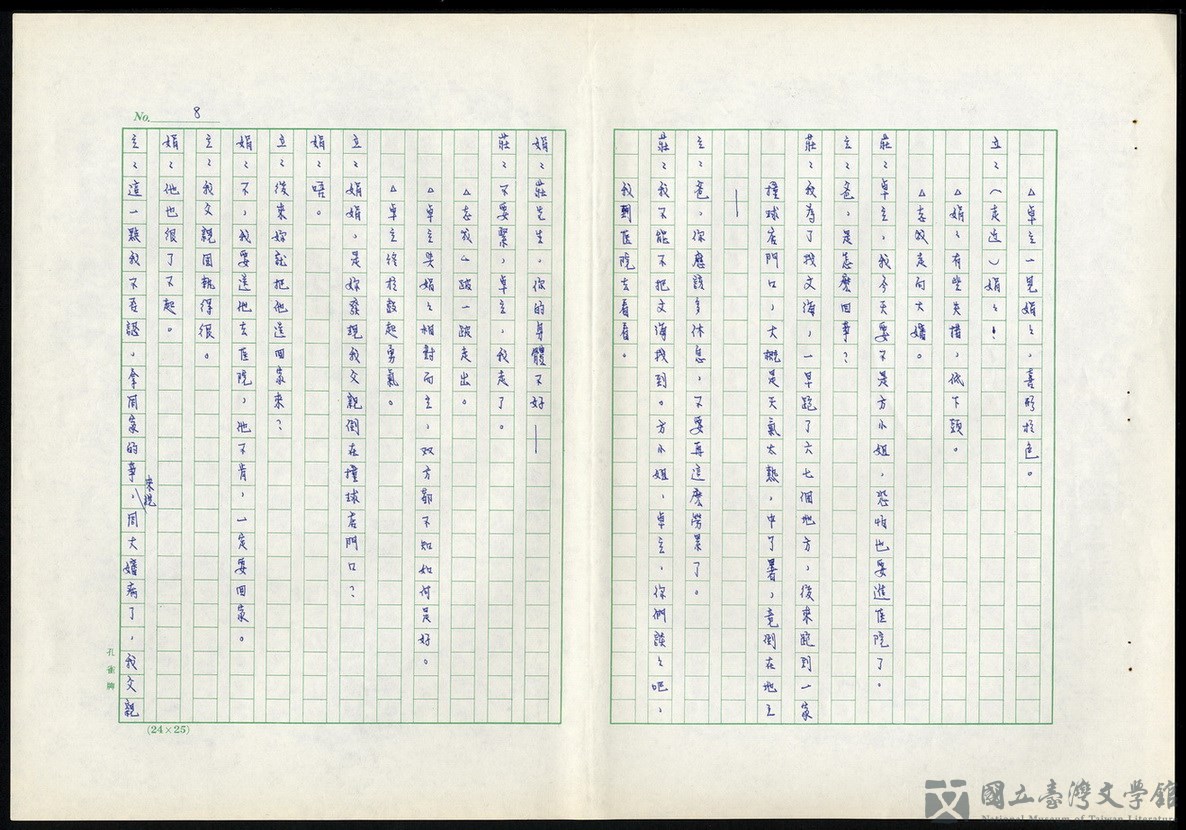 △卓立一見娟娟，喜形於色。
立：（走近）娟娟！
△娟娟有些失措，低下頭。
△志成走向大嬸。
莊：卓立，我今天要不是方小姐，恐怕也要進医院了。
立：爸，是怎麼回事？
莊：我為了找文海，一早跑了六七個地方，後來跑到一家
撞球店門口，大概是天氣太熱，中了暑，竟倒在地上
——
立：爸，你應該多休息，不要再這麼勞累了。
莊：我不能不把文海找到。方小姐，卓立，你們談談吧，
我到医院去看看。
No. 8
娟：莊先生，你的身體不好——
莊：不要緊，卓立，我走了。
△志成一跛一跛走出。
△卓立與娟娟相對而立，双方都不知如何是好。
△卓立終於鼓起勇氣。
立：娟娟，是妳發現我父親倒在撞球店門口？
娟：唔。
立：後來妳就把他送回家來？
娟：不，我要送他去医院，他不肯，一定要回家。
立：我父親固執得很。
娟：他也很了不起。
立：這一點我不否認，拿周家的事來說，周大嬸病了，我父親
孔雀牌
(24×25)
國立臺灣文學館
National Museum of Taiwan Literature